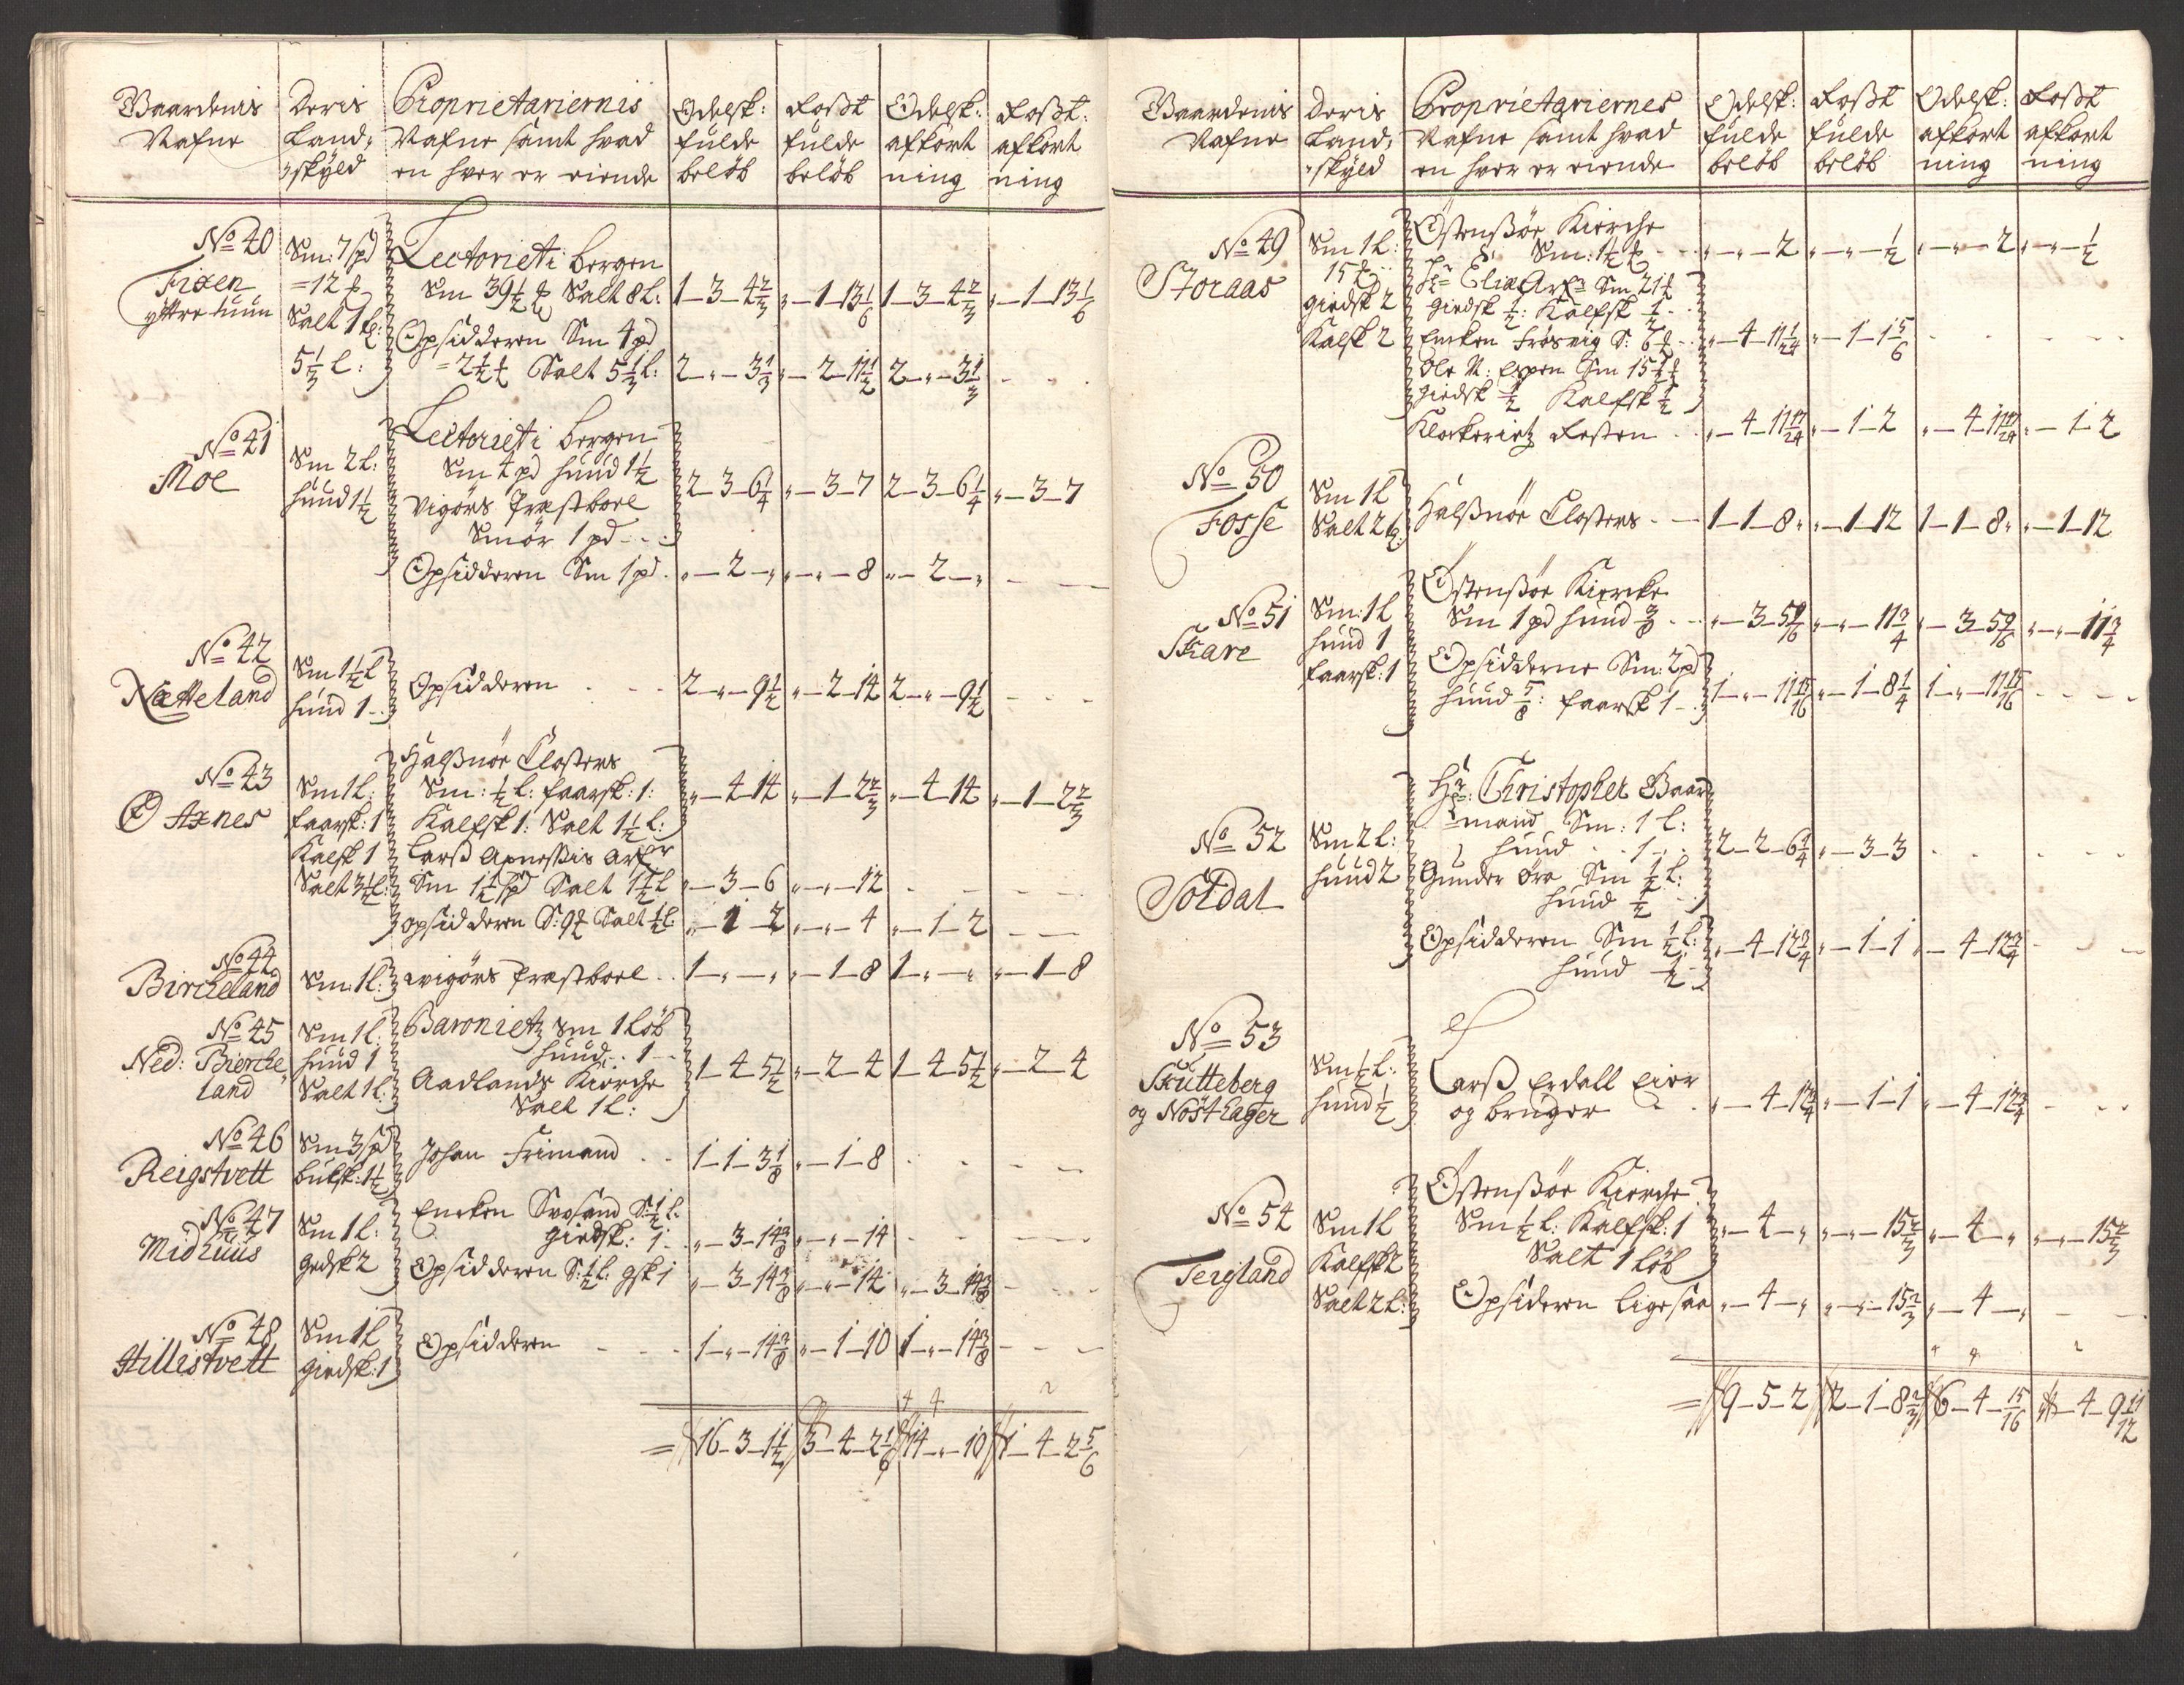 Gaardenis Nafne
Deris Land„ „skyld
Proprietariernis Nafne samt hvad en hver er eiende
Odelsk: fulde beløb
Leβt fulde beløb
Odelsk: afkort ning
Leβt: afkort ning
No 40
Fixen
yttre tuun
Sm: 7 pd
=12
Salt 1
5 1/3 l:
Lectoriet i bergen
Sm 39 1/2 Salt 8 l: 1-3-4 2/3 „-1-13 1/6 1-3-4 2/3 „-1-13 1/6
Opsidderen Sm 4 pd
=2 1/2 Salt 5 1/3 l: 2-„-3 1/3 „-2-11 1/2 2-„-3 1/3
No 41
Moe
Sm 2 l:
huud 1 1/2
Lectoriet i bergen
Sm 4 pd huud 1 1/2
Vigørs Præstboel
Smör 1 pd
2-3-6 1/4 „-3-7 2-3-6 1/4 „-3-7
Opsidderen Sm 1 pd „-2-„ „-„-8 „-2-„
No 42
Nætteland
Sm 1 1/2 l
huud 1
Opsidderen 2-„-9 1/2 „-2-14 2-„-9 1/2
No 43
Axnes
Sm 1 l:
faarsk: 1
Kalfsk 1
Salt 3 1/2 l:
Halβnöe Closters
Sm: 1/2 l: faarsk: 1: „-4-14 „-1-2 2/3 „-4-14 „-1-2 2/3
Kalfsk 1: Salt 1 1/2 l:
Larβ
Sm 1 1/2 pd Salt 1 1/2 l „-3-6 „-„-12
opsidderen S: 9 Salt 1/2 l: „-1-2 „-„-4 „-1-2
No 44
Bircheland
Sm: 1 l:
wigørs Præstboel 1-„-„ „-1-8 1-„-„ „-1-8
No 45
Ned: Bierche
land
Sm 1 l:
huud 1
Salt 1 l:
Baronietz Sm 1 Löb
huud 1
Aadlands Kirche
Salt 1 l:
1-4-5 1/2 „-2-4 1-4-5 1/2 „-2-4
No 46
Reigstvett
Sm 3 pd
buksk: 1 1/2
Johan Frimand 1-1-3 1/8 „-1-8
No 47
Midhuus
Sm 1 l:
gedsk 2
Encken S: 1/2 l:
giedsk: 1 „-3-14 3/8 „-„-14
Opsidderen S: 1/2 l: gsk 1 „-3-14 3/8 „-„-14 „-3-14 3/8
No 48
Hillistvett
Sm 1 l
giedsk: 1
Opsidderen 1-„-14 3/8 „-1-10 1-„-14 3/8
= 16-3-1 1/2 5-4-2 1/6 14-„-10 1-4-2 5/6
Gaardenis Nafne
Deris Land„ „skyld
Proprietariernes Nafne samt hvad en hver er eiende
Odelsk: fulde beløb
Leβt fulde beløb
Odelsk: afkort ning
Leβt afkort ning
No 49
Storaas
Sm 1 l:
15
giedsk 2
Kalfsk 2
Östensöe Kirche
Sm: 1 1/2 „-„-2 „-„-1/2 „-„-2 „-„-1/2
Hr Eliæ Arf: Sm 21
giedsk 1/2: Kalfsk 1/2
Encken Frøsvig S: 6 „-4-11 1/24 „-1-1 5/6
Ole N: Espen Sm 15
giedsk 1/2 Kalfsk 1/2
Klockerietz Resten „-4-11 17/24 „-1-2 „-4-11 17/24 „-1-2
No 50
Fosse
Sm 1 l
Salt 2
Halβnöe Closters 1-1-8 „-1-12 1-1-8 „-1-12
No 51
Skare
Sm: 1 l
huud 1
faarsk: 1
Östensöe Kiercke
Sm 1 pd huud 3/8 „-3-5 9/16 „-„-11 3/4 „-3-5 9/16 „-„-11 3/4
Opsidderne Sm: 2 pd
huud 5/8: faarsk 1 1-„-11 15/16 „-1-8 1/4 1-„-11 15/16
No 52
Soldal
Sm 2 l:
huud 2
Hr: Christopher Gaar
mand Sm: 1 l:
huud 1
2-2-6 1/4 „-3-3
Gunder Øre Sm 1/2 l:
huud 1/2
Opsidderen Sm 1/2 l: „-4-12 3/4 „-1-1 „-4-12 3/4
huud 1/2
No 53
Skutteberg
og Nösthager
Sm 1/2 l:
huud 1/2
Larβ Erdall Eier
og bruger „-4-12 3/4 „-1-1 „-4-12 3/4
No 54
Tergland
Sm 1 l
Kalfsk 2
Salt 2 l:
Östensöe Kirche
Sm 1/2 l: Kalfsk: 1 „-4-„ „-„-15 2/3 „-4-„ „-„-15 2/3
Salt 1 löb
Opsideren ligesaa „-4-„ „-„-15 2/3 „-4-„
= 9-5-2 2-1-8 2/3 6-4-15/16 „-4-9 11/12